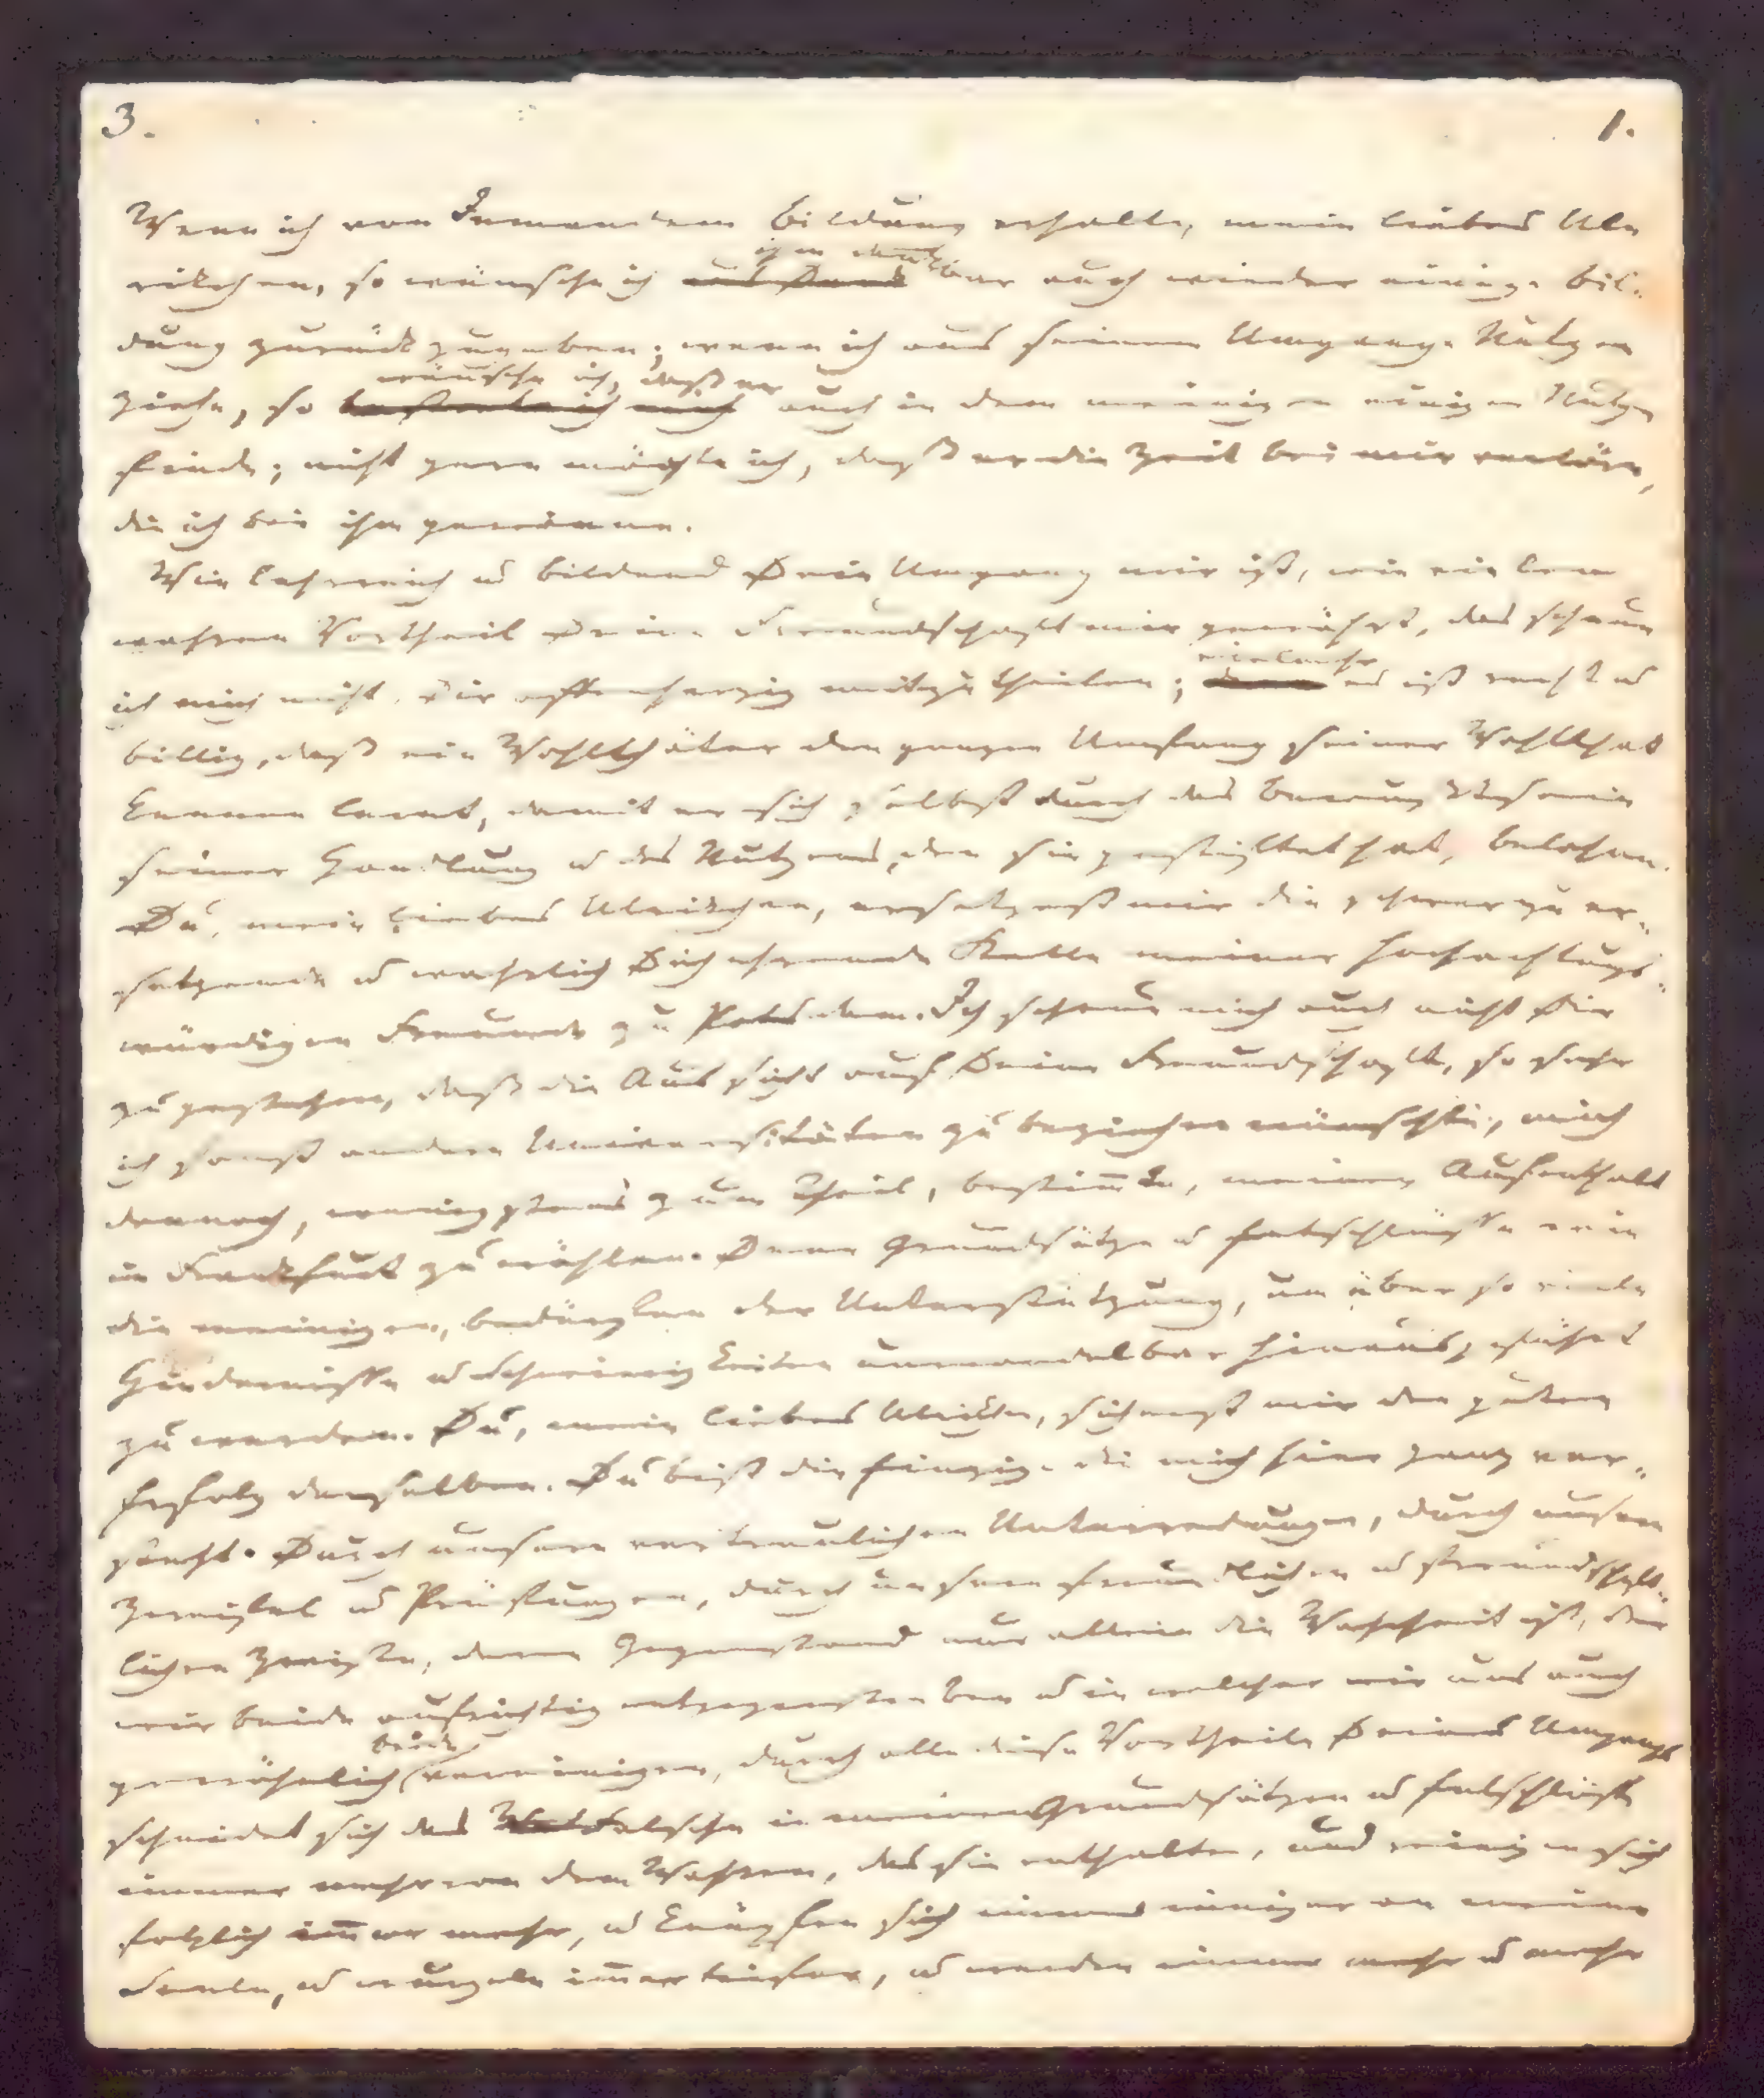 3. 1.
Wenn ich von Jemandem Bildung erhalte, mein liebes Ul-
rikchen, so wünsche ich ihm dankbar auch wieder einige Bil-
dung zurückzugeben; wenn ich aus seinem Umgange Nutzen
ziehe, so wünsche ich, daß er auch in dem meinigen einigen Nutzen
finde; nicht gern möchte ich, daß er die Zeit bei mir verlöre,
die ich bei ihm gewinne.
Wie lehrreich u bildend Dein Umgang mir ist, wie vielen
wahren Vortheil Deine Freundschaft mir gewährt, das scheue
ich mich nicht, Dir offenherzig mitzutheilen; vielmehr es ist recht u
billig, daß ein Wohlthäter den ganzen Umfang seiner Wohlthat
kennen lernt, damit er sich selbst durch das Bewußtsein
seiner Handlung u des Nutzens, den sie gestiftet hat, belohne.
Du, mein liebes Ulrikchen, ersetzest mir die schwer zu er-
setzende u wahrlich Dich ehrende Stelle meiner hochachtungs-
würdigen Freunde zu Potsdam. Ich scheue mich auch nicht Dir
zu gestehen, daß die Aussicht auf Deine Freundschaft, so sehr
ich sonst andere Universitäten zu beziehen wünschte, mich
dennoch, wenigstens zum Theil, bestimmte, meinen Aufenthalt
in Frankfurt zu wählen. Denn Grundsätze u Entschlüsse wie
die meinigen, bedürfen der Unterstützung, um über so viele
Hindernisse u Schwierigkeiten unwandelbar hinausgeführt
zu werden. Du, mein liebes Ulrikchen, sicherst mir den guten
Erfolg derselben. Du bist die Einzige die mich hier ganz ver-
steht. Durch unsere vertraulichen Unterredungen, durch unsere
Zweifel u Prüfungen, durch unsere freundlichen u freundschaft-
lichen Zwiste, deren Gegenstand nur allein die Wahrheit ist, der
wir beide aufrichtig entgegenstreben u in welcher wir uns auch
gewöhnlich beide vereinigen, durch alle diese Vortheile Deines Umgangs
scheidet sich das Falsche in meinen Grundsätzen u Entschlüssen
immer mehr von dem Wahren, das sie enthalten, und reinigen sich
folglich immer mehr, u knüpfen sich immer inniger an meine
Seele, u wurzeln immer tiefer, u werden immer mehr u mehr